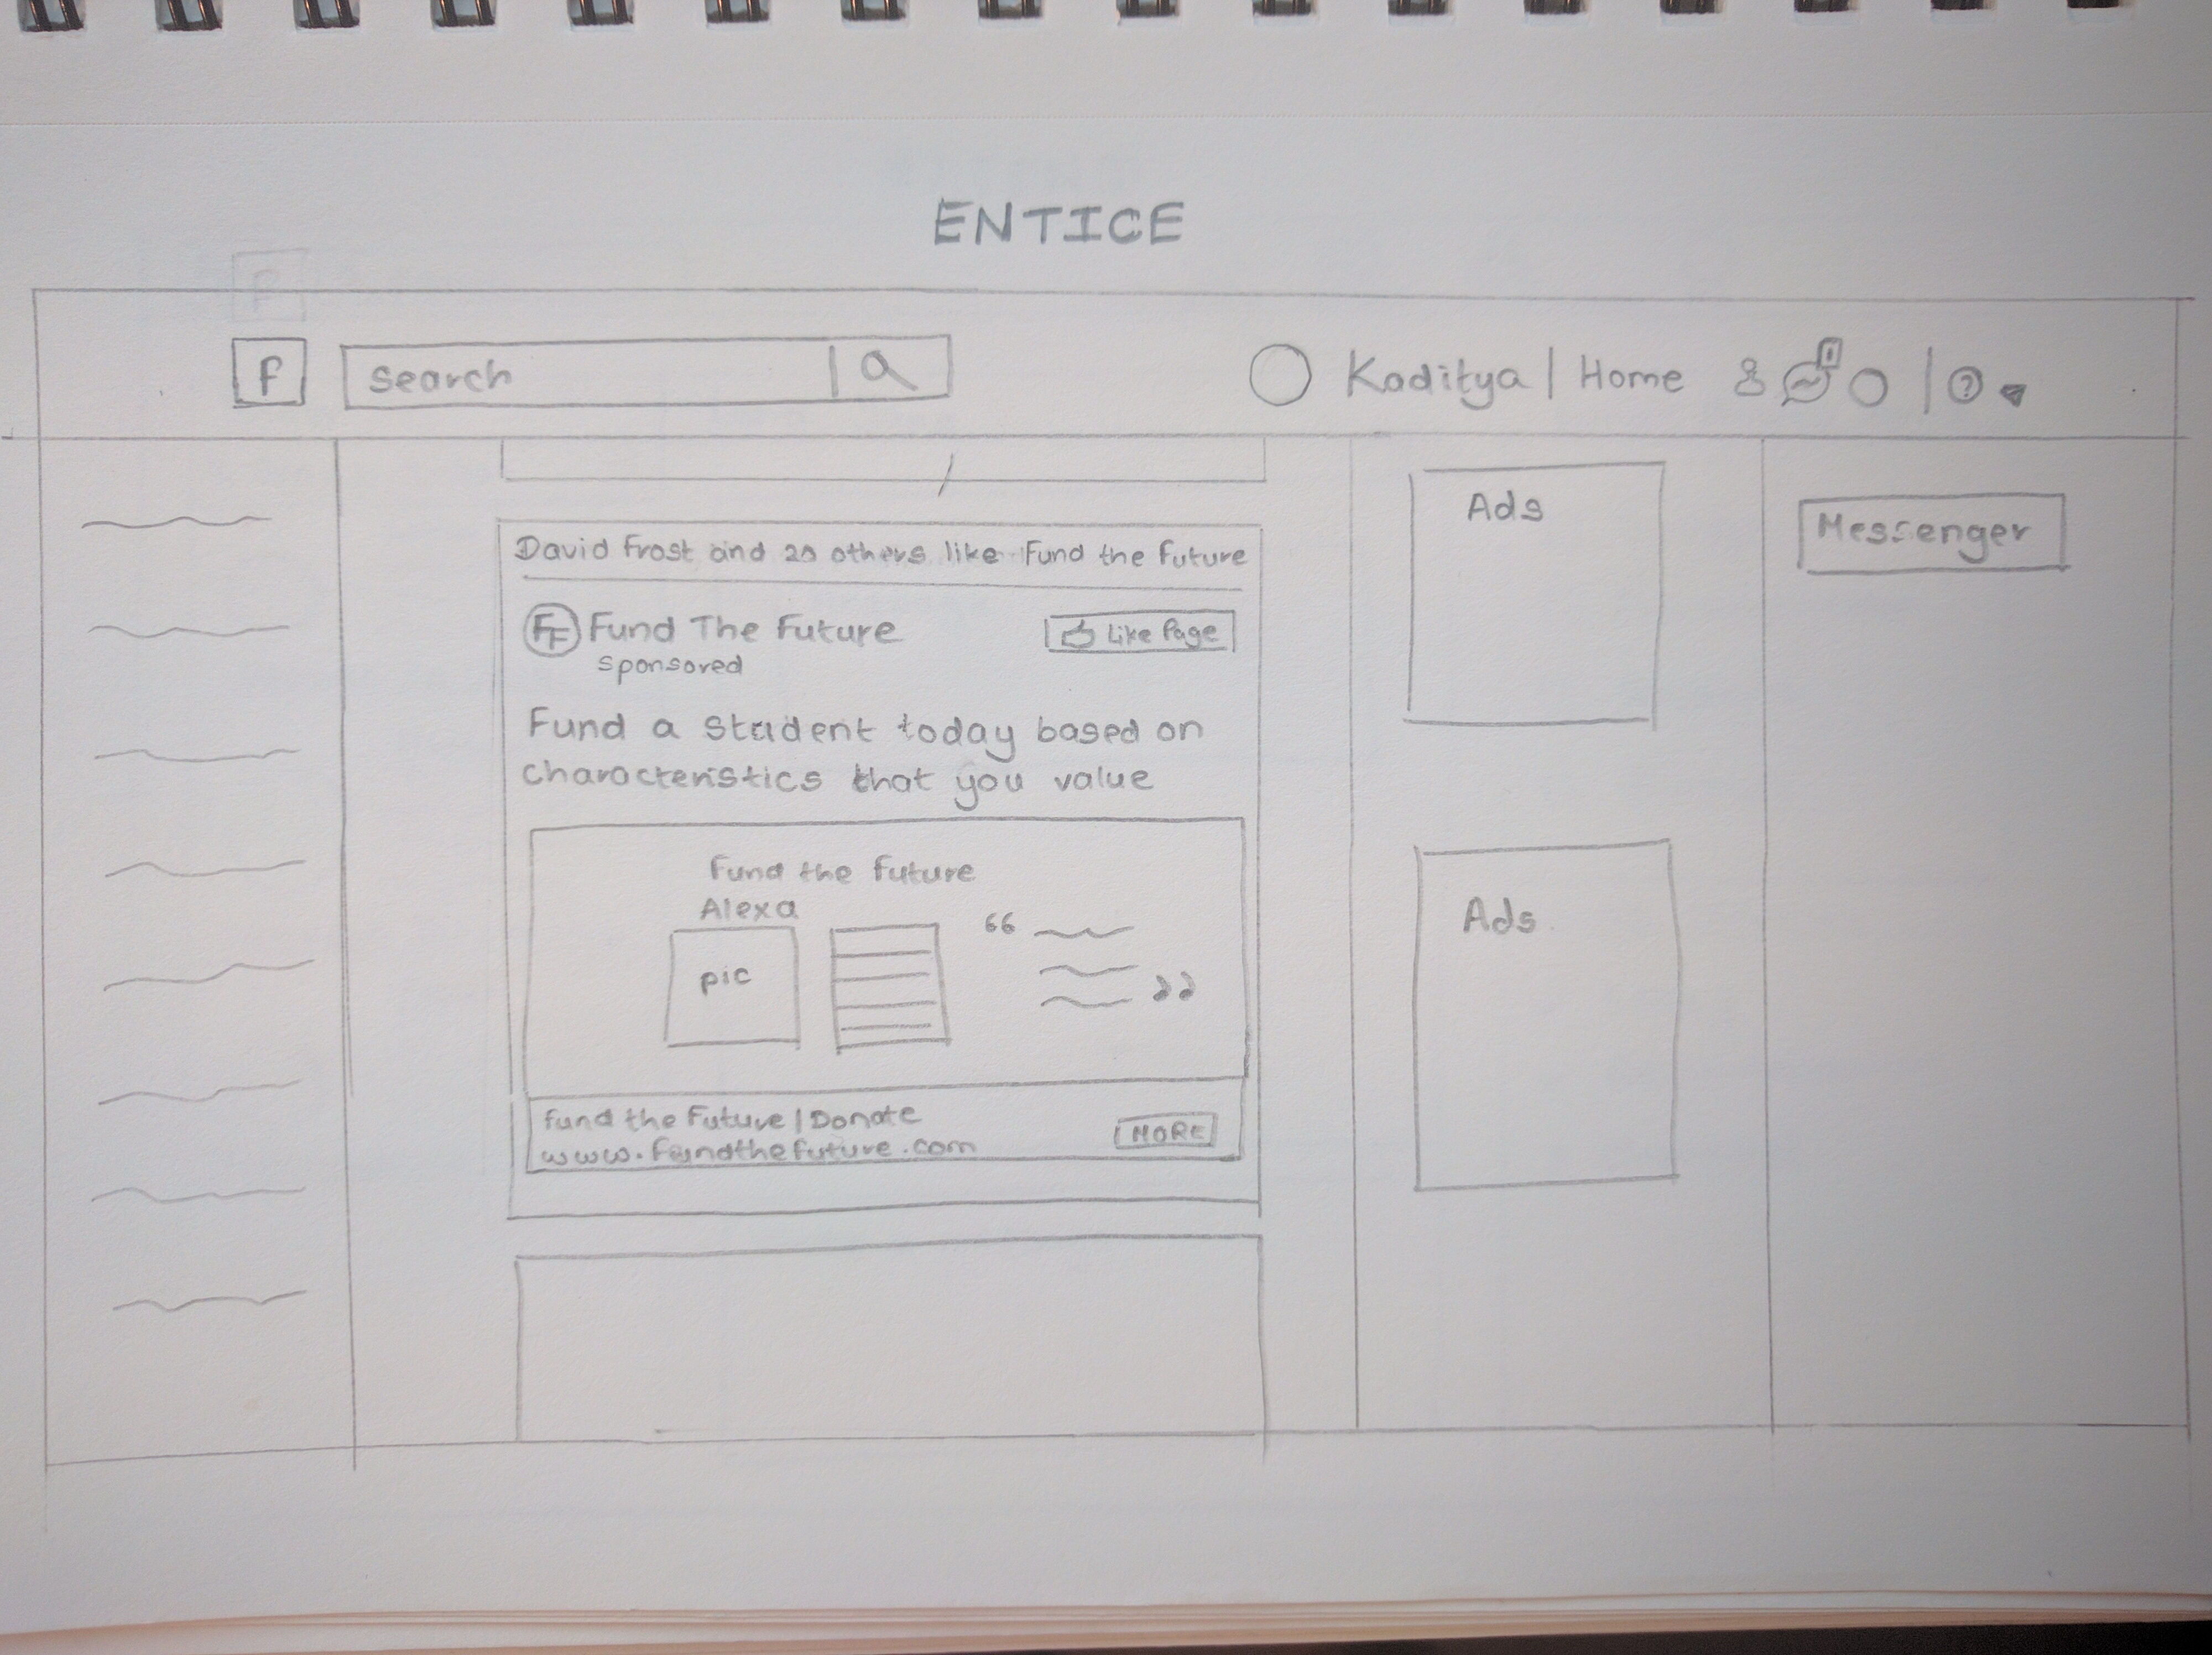 ENTICE
F
Search
Kaditya | Home
?
David Frost and 20 others like Fund the Future
FF Fund The Future
Like Page
Sponsored
Fund a Student today based on
characteristics that you value
Fund the Future
Alexa
pic
“
”
Fund the Future | Donate
www.fundthefuture.com
MORE
Ads
Ads
Messenger